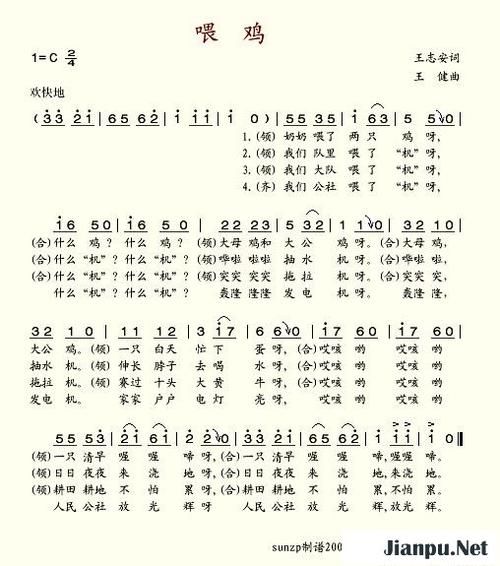 喂 鸡
1=C 2/4
王志安词
王 健曲
欢快地
(3̇3̇ 2̇1̇ | 65 62̇ | 1̇ 1̇ | 1̇ 0) | 55 35 | 1̇ 63 | 5 50 |
1.(领)奶奶 喂了 两 只 鸡 呀,
2.(领)我们 队里 喂 了 “机”呀,
3.(领)我们 大队 喂 了 “机”呀,
4.(齐)我们 公社 喂 了 “机”呀,
1̇6 50 | 1̇6 50 | 22 23 | 5 32 | 1 10 | 22 23 |
(合)什么 鸡? 什么 鸡? (领)大母 鸡和 大 公 鸡呀。(合)大母 鸡,
(合)什么 “机”? 什么 “机”? (领)哗啦 啦啦 抽 水 机呀。(合)哗啦 啦,
(合)什么 “机”? 什么 “机”? (领)突突 突突 拖 拉 机呀。(合)突突 突,
什么 “机”? 什么 “机”? 轰隆 隆隆 发 电 机呀。 轰隆 隆,
32 10 | 11 12 | 3 1̇7 | 6 20 | 03 1̇7 | 06 65 |
大公 鸡。(领)一只 白天 忙 下 蛋 呀,(合)哎咳 哟 哎咳 哟
抽水 机。(领)伸长 脖子 去 喝 水 呀,(合)哎咳 哟 哎咳 哟
拖拉 机。(领)赛过 十头 大 黄 牛 呀,(合)哎咳 哟 哎咳 哟
发电 机。 家家 户户 电 灯 亮 呀, 哎咳 哟 哎咳 哟
55 53 | 2̇1̇ 61̇ | 2̇ 2̇0 | 55 53 | 2̇1̇ 62̇ | 1̇ 1̇1̇ | 1̇ 0 ‖
(领)一只 清早 喔 喔 啼 呀,(合)一只 清早 喔 喔 啼,喔喔 啼。
(领)日日 夜夜 来 浇 地 呀,(合)日日 夜夜 来 浇 地,来浇 地。
(领)耕田 耕地 不 怕 累 呀,(合)耕田 耕地 不 怕 累,不怕 累。
人民 公社 放 光 辉 呀 人民 公社 放 光 辉,放光 辉。
sunzp制谱200
Jianpu.Net